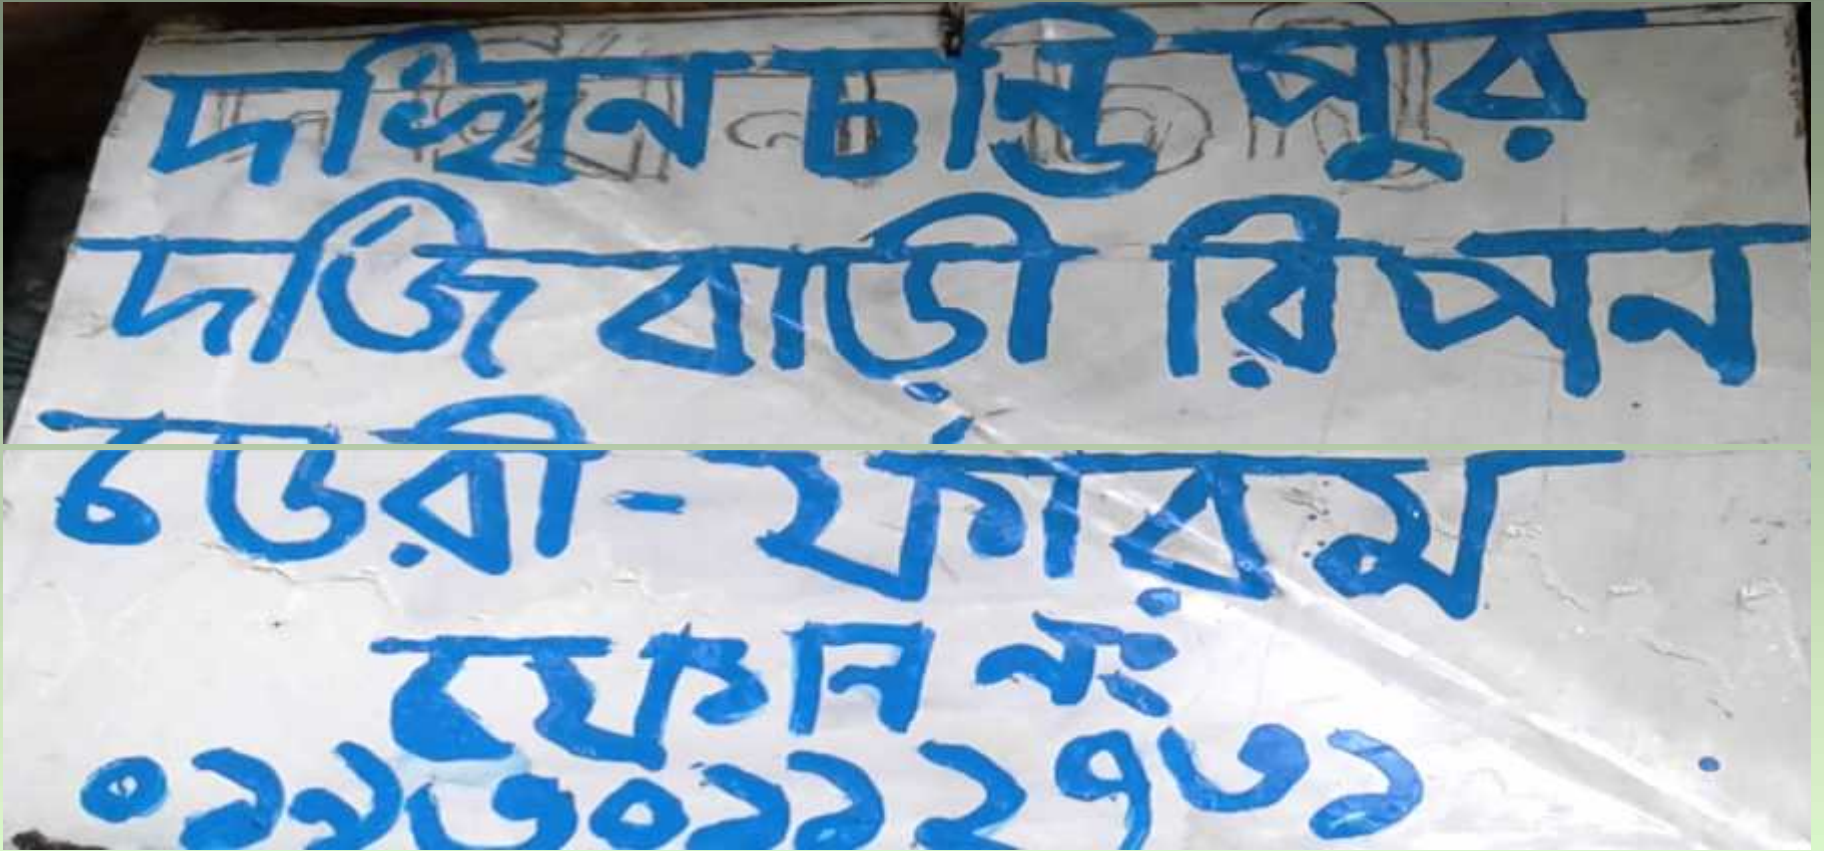 দক্ষিন চন্ডিপুর
দর্জি বাড়ী রিপন
ডেরী-ফারম
ফোন নং
০১৯৩০১১২৭৩১